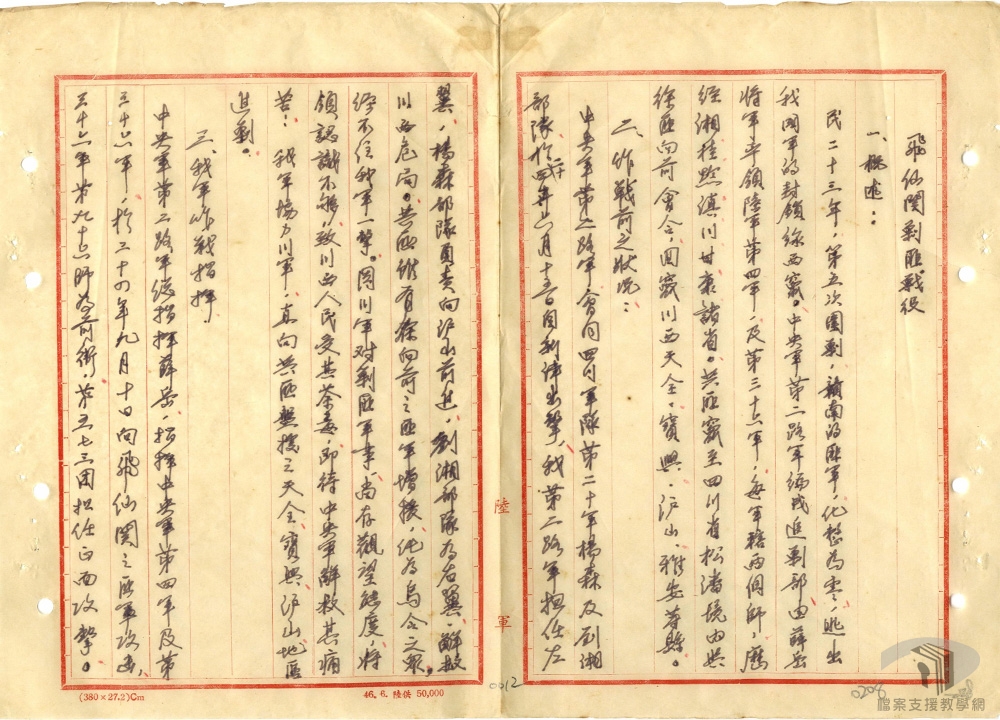 飛仙関剿匪戰役
一、概述：
民二十三年，第五次圍剿，贛南的匪軍，化整為零，逃出
我國軍的封鎖線西竄。中央軍第二路軍編成追剿部由薛岳
將軍率領陸軍第四軍，及第三十六軍，每軍轄兩個師，歷
經湘桂黔滇川甘康諸省。共匪竄至四川省松潘境內與
徐匪向前會合，回竄川西天全，寶興，沪山，雅安等縣。
二、作戰前之狀況：
中央軍第二路軍，會同四川軍隊第二十軍楊森及劉湘
部隊於二十四年六月十五日自利津出擊，我第二路軍担任左
翼，楊森部隊負責向沪山前進，劉湘部隊為右翼，解救
川西危局。共匪雖有徐向前之匪軍增援，純為烏合之眾，
經不住我軍一擊。因川軍对剿匪軍事，尚存觀望態度，將
領認識不夠，致川西人民受其荼毒，即待中央軍解救其痛
苦：我軍協力川軍，直向共匪盤據之天全寶興沪山地區
進剿。
三、我軍作戰指揮
中央軍第二路軍總指揮薛岳，指揮中央軍第四軍及第
三十六軍，於二十四年九月十日向飛仙関之匪軍攻击，
三十六軍第九十六師為前衛，第五七三团担任正面攻擊。
陸 軍
(380×27.2)Cm
46. 6. 陸供 50,000
0012
0208
檔案支援教學網